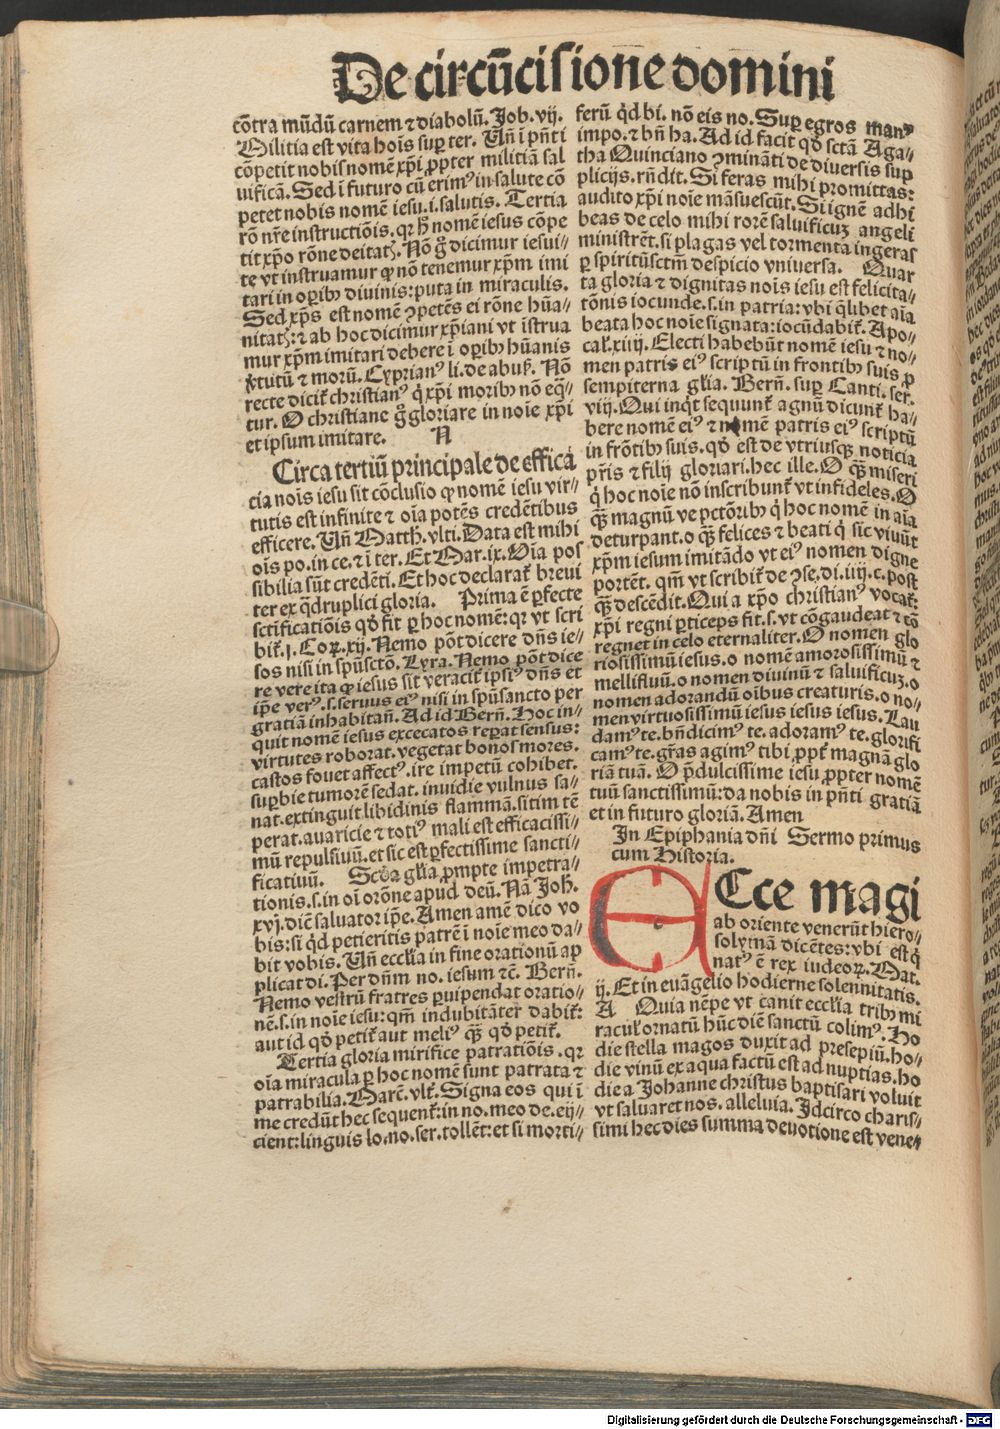 De circūcisione domini
cōtra mūdū carnem ⁊ diabolū. Job. vij.
Militia est vita hoīs suꝑ ter. Uñ ī pn̄ti
cōpetit nobis nomē xp̄i ꝓpter militiā sal
uificā. Sed ī futuro cū erimꝰ in salute cō
petet nobis nomē iesu .i. salutis. Tertia
rō nr̄e instructiōis. qr h̄ nomē iesus cōpe
tit xp̄o rōne deitatꝭ. Nō g̊ dicimur iesui⸗
te vt instruamur ꝙ nō tenemur xp̄m imi
tari in oꝑibꝰ diuinis: puta in miraculis.
Sed xp̄s est nomē ꝯpetēs ei rōne hūa⸗
nitatꝭ: ⁊ ab hoc dicimur xp̄iani vt īstrua
mur xp̄m imitari debere ī oꝑibꝰ hūanis
v̓tutū ⁊ morū. Cyprianꝰ li. de abuẞ. Nō
recte dicit̄ christianꝰ q̇ xp̄i moribꝰ nō eq̄⸗
tur. O christiane g̊ gloriare in noīe xp̄i
et ipsum imitare. N
Circa tertiū principale de efficá
cia noīs iesu sit cōclusio ꝙ nomē iesu vir⸗
tutis est infinite ⁊ oīa potēs credētibus
efficere. Uñ Matth. vlti. Data est mihi
oīs po. in ce. ⁊ ī ter. Et Mar. ix. Oīa pos
sibilia sūt credēti. Et hoc declarat̄ breui
ter ex q̄druplici gloria. Prima ē ꝑfecte
sctificatiōis qḋ fit ꝑ hoc nomē: qr vt scri
bit̄ .j. Coꝝ. xij. Nemo pōt dicere dn̄s ie⸗
sos nisi in spūsctō. Lyra. Nemo pōt dice
re vere ita ꝙ iesus sit veracit̄ ipsiꝰ dn̄s et
ip̄e verꝰ .s. seruus eiꝰ nisi in spūsancto per
gratiā inhabitañ. Ad id Berñ. Hoc in⸗
quit nomē iesus excecatos reꝑat sensus:
virtutes roborat. vegetat bonos mores.
castos fouet affectꝰ. ire impetū cohibet.
suꝑbie tumorē sedat. inuidie vulnus sa⸗
nat. extinguit libidinis flammā. sitim tē
perat. auaricie ⁊ totiꝰ mali est efficacissi⸗
mū repulsiuū. et sic est ꝑfectissime sancti⸗
ficatiuū. Scḋa gl̄ia ꝓmpte impetra⸗
tionis .s. in oī orōne apud deū. Nā Joh̄.
xvj. diē saluator ip̄e. Amen amē dico vo
bis: si q̇d petieritis patrē ī noīe meo da⸗
bit vobis. Uñ eccl̄ia in fine orationū ap
plicat di. Per dn̄m no. iesum ⁊c̄. Berñ.
Nemo vestrū fratres ꝑuipendat oratio⸗
nē .s. in noīe iesu: qm̄ indubitāter dabit̄:
aut id qḋ petit̄ aut meliꝰ q̄ꝫ qḋ petit̄.
Tertia gloria mirifice patratiōis. qr
oīa miracula ꝑ hoc nomē sunt patrata ⁊
patrabilia. Marc̄. vlt̄. Signa eos qui ī
me credūt hec sequent̄: in no. meo de. eij⸗
cient: linguis lo. no. ser. tollēt: et si morti⸗
ferū q̇d bi. nō eis no. Suꝑ egros manꝰ
impo. ⁊ bn̄ ha. Ad id facit qḋ sctā Aga⸗
tha Quinciano ꝯmināti de diuersis sup
plicijs. rn̄dit. Si feras mihi promittas:
audito xp̄i noīe māsuescūt. Si ignē adhi
beas de celo mihi rorē saluificuꝫ angeli
ministrēt. si plagas vel tormenta ingeras
ꝑ spiritūsctm̄ despicio vniuersa. Quar
ta gloria ⁊ dignitas noīs iesu est felicita⸗
tōnis iocunde .s. in patria: vbi q̄libet aīa
beata hoc noīe signata: iocūdabit̄. Apo⸗
cal̄. xiiij. Electi habebūt nomē iesu ⁊ no⸗
men patris eiꝰ scriptū in frontibꝰ suis ꝓ
sempiterna gl̄ia. Berñ. suꝑ Canti. ser.
viij. Qui inq̇t sequunt̄ agnū dicunt̄ ha⸗
bere nomē eiꝰ ⁊ nomē patris eiꝰ scriptū
in frōtibꝰ suis. qḋ est de vtriusqꝫ noticia
pr̄is ⁊ filij gloriari. hec ille. O q̄ꝫ miseri
q̇ hoc noīe nō inscribunt̄ vt infideles. O
q̄ꝫ magnū ve pctōribꝰ q̇ hoc nomē in aīa
deturpant. o q̄ꝫ felices ⁊ beati q̇ sic viuūt
xp̄m iesum imitādo vt eiꝰ nomen digne
portēt. qm̄ vt scribit̄ de ꝯse. di. iiij. c. post
q̄ꝫ descēdit. Qui a xp̄o christianꝰ vocat̄:
xp̄i regni ꝑticeps fit .s. vt cōgaudeat ⁊ cō
regnet in celo eternaliter. O nomen glo
riosissimū iesus. o nomē amorosissimū ⁊
mellifluū. o nomen diuinū ⁊ saluificuꝫ. o
nomen adorandū oībus creaturis. o no⸗
men virtuosissimū iesus iesus iesus. Lau
damꝰ te. bn̄dicimꝰ te. adoramꝰ te. glorifi
camꝰ te. gr̄as agimꝰ tibi ꝓpt̄ magnā glo
riā tuā. O p̄dulcissime iesu ꝓpter nomē
tuū sanctissimū: da nobis in pn̄ti gratiā
et in futuro gloriā. Amen
In Epiphania dn̄i Sermo primus
cum Historia.
ECce magi
ab oriente venerūt hiero⸗
solymā dicētes: vbi est q̇
natꝰ ē rex iudeoꝝ. Mat.
ij. Et in euāgelio hodierne solennitatis.
A Quia nēpe vt canit eccl̄ia tribꝰ mi
racul̄ ornatū hūc diē sanctū colimꝰ. Ho
die stella magos duxit ad presepiū. ho⸗
die vinū ex aqua factū est ad nuptias. ho
die a Johanne christus baptisari voluit
vt saluaret nos. alleluia. Idcirco charis⸗
simi hec dies summa deuotione est vene⸗
Digitalisierung gefördert durch die Deutsche Forschungsgemeinschaft - DFG